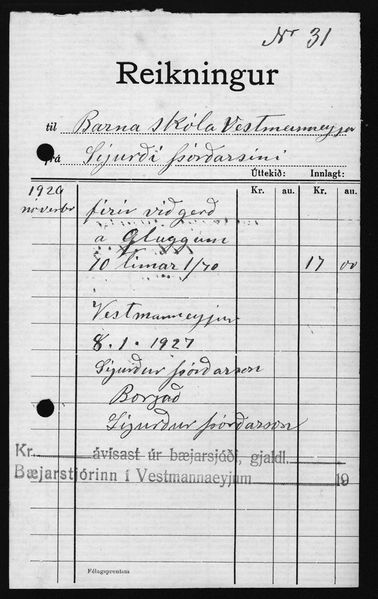 Nr 31
Reikningur
til Barna skóla Vestmanneyjar
frá Sigurði Þórðarsini
Úttekið: Innlagt:
Kr. au. Kr. au.
1926
nóverbr firir viðgerð
á Gluggum
10 Tímar 1/70 17 00
Vestmanneyjur
8. 1. 1927
Sigurður Þórðarson
Borgað
Sigurður Þórðarson
Kr. ávísast úr bæjarsjóði, gjaldl.
Bæjarstjórinn í Vestmannaeyjum 19
Félagsprentsm